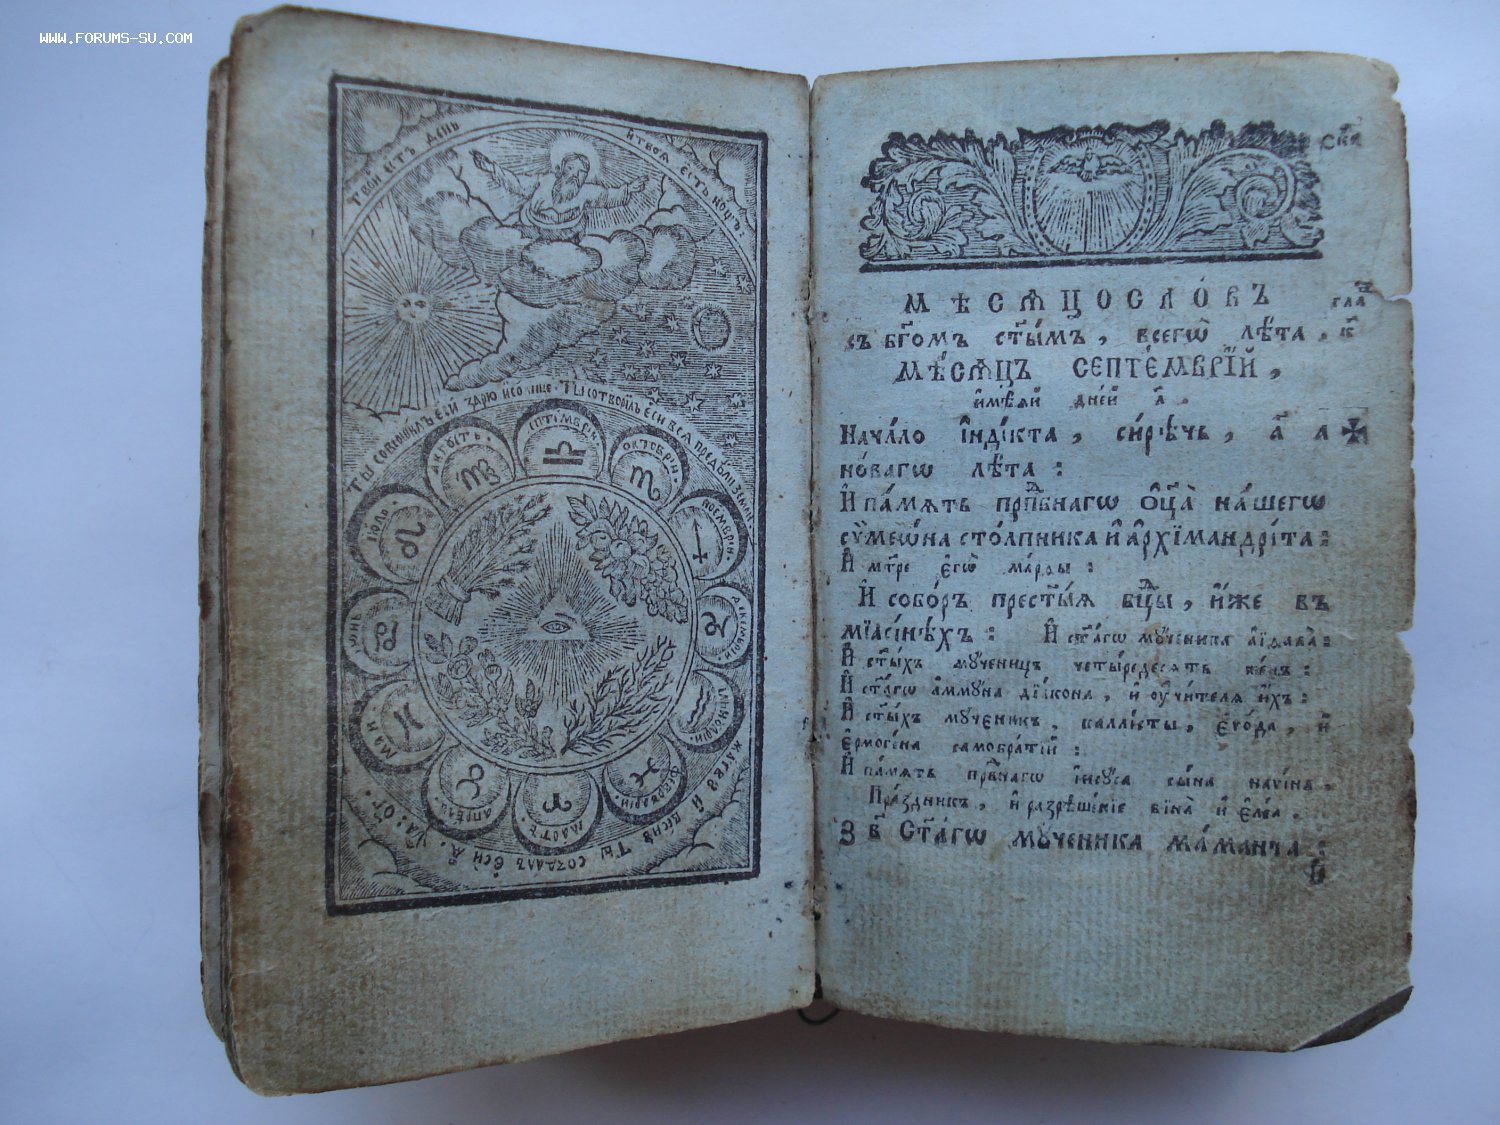 WWW.FORUMS-SU.COM
ТВОЙ ЕСТЬ ДЕНЬ И ТВОЯ ЕСТЬ НОЩЬ.
ТЫ СОВЕРШИЛЪ ЕСИ ЗАРЮ И СОЛНЦЕ. ТЫ СОТВОРИЛЪ ЕСИ ВСЯ ПРЕДѢЛЫ ЗЕМЛИ
АѴГȢСТЪ.
СЕПТЕМВРІЙ
ОКТОВРІЙ.
НОЕМВРІЙ.
ДЕКЕМВРІЙ.
ФЕВРАРІЙ
МАРТЪ.
АПРЕЛЬ
МАЙ
ІЮНЬ
ІЮЛЬ.
ЖАТВȢ И ВЕСНȢ ТЫ СОЗДАЛЪ ЕСИ
МѢСѦЦОСЛО́ВЪ
съ бг҃омъ ст҃ы́мъ, всегѡ̀ лѣ́та,
МѢ́СѦЦЪ СЕПТЕ́МВРЇЙ,
и҆мѣ́ѧй дне́й л҃.
Нача́ло і҆нді́кта, си́рѣчь, а҃
но́вагѡ лѣ́та :
И҆ па́мѧть прпⷣбнагѡ ѻ҆ц҃а̀ на́шегѡ
сѷмеѡ́на сто́лпника и҆ а҆рхїмандрі́та :
И҆ мт҃ре є҆гѡ̀ ма́рѳы :
И҆ собо́ръ прест҃ы́ѧ бцⷣы, и҆́же въ
мїасі́нѣхъ : И҆ ст҃а́гѡ мꙋ́ченика а҆іѳала̀ :
И҆ ст҃ы́хъ мꙋ́ченицъ четы́редесѧть же́нъ :
И҆ ст҃а́гѡ а҆ммꙋ́на дїа́кона, и҆ ᲂу҆чи́телѧ и҆́хъ :
И҆ ст҃ы́хъ мꙋ́ченикъ, каллі́сты, є҆во́да, и҆
є҆рмоге́на самобра́тїй :
И҆ па́мѧть првⷣнагѡ і҆исꙋ́са сы́на наѵі́на,
Пра́здникъ, и҆ разрѣше́нїе вїна̀ и҆ є҆ле́а.
З в҃ Ст҃а́гѡ мꙋ́ченика ма́манта :